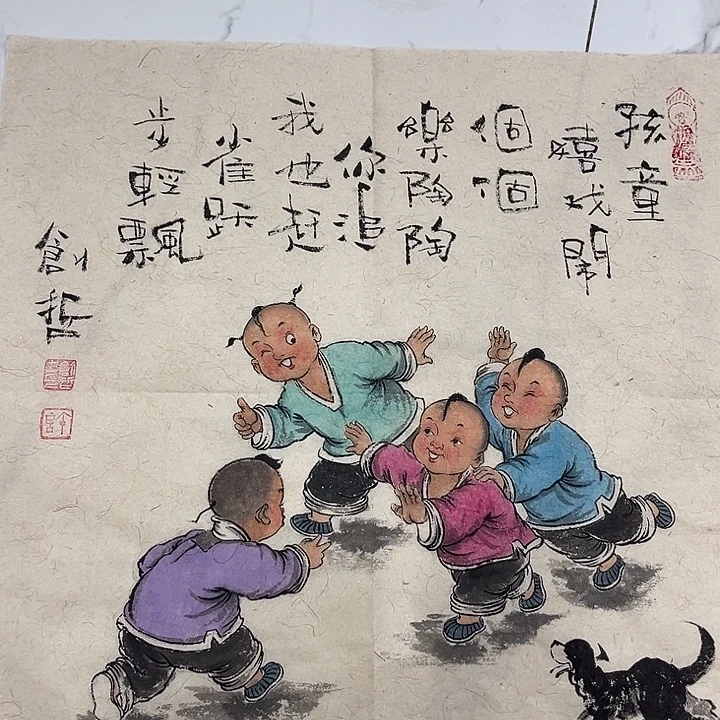 孩童
嬉戏閙
個個
樂陶陶
你追
我也赶
雀跃
步輕飄
創哲